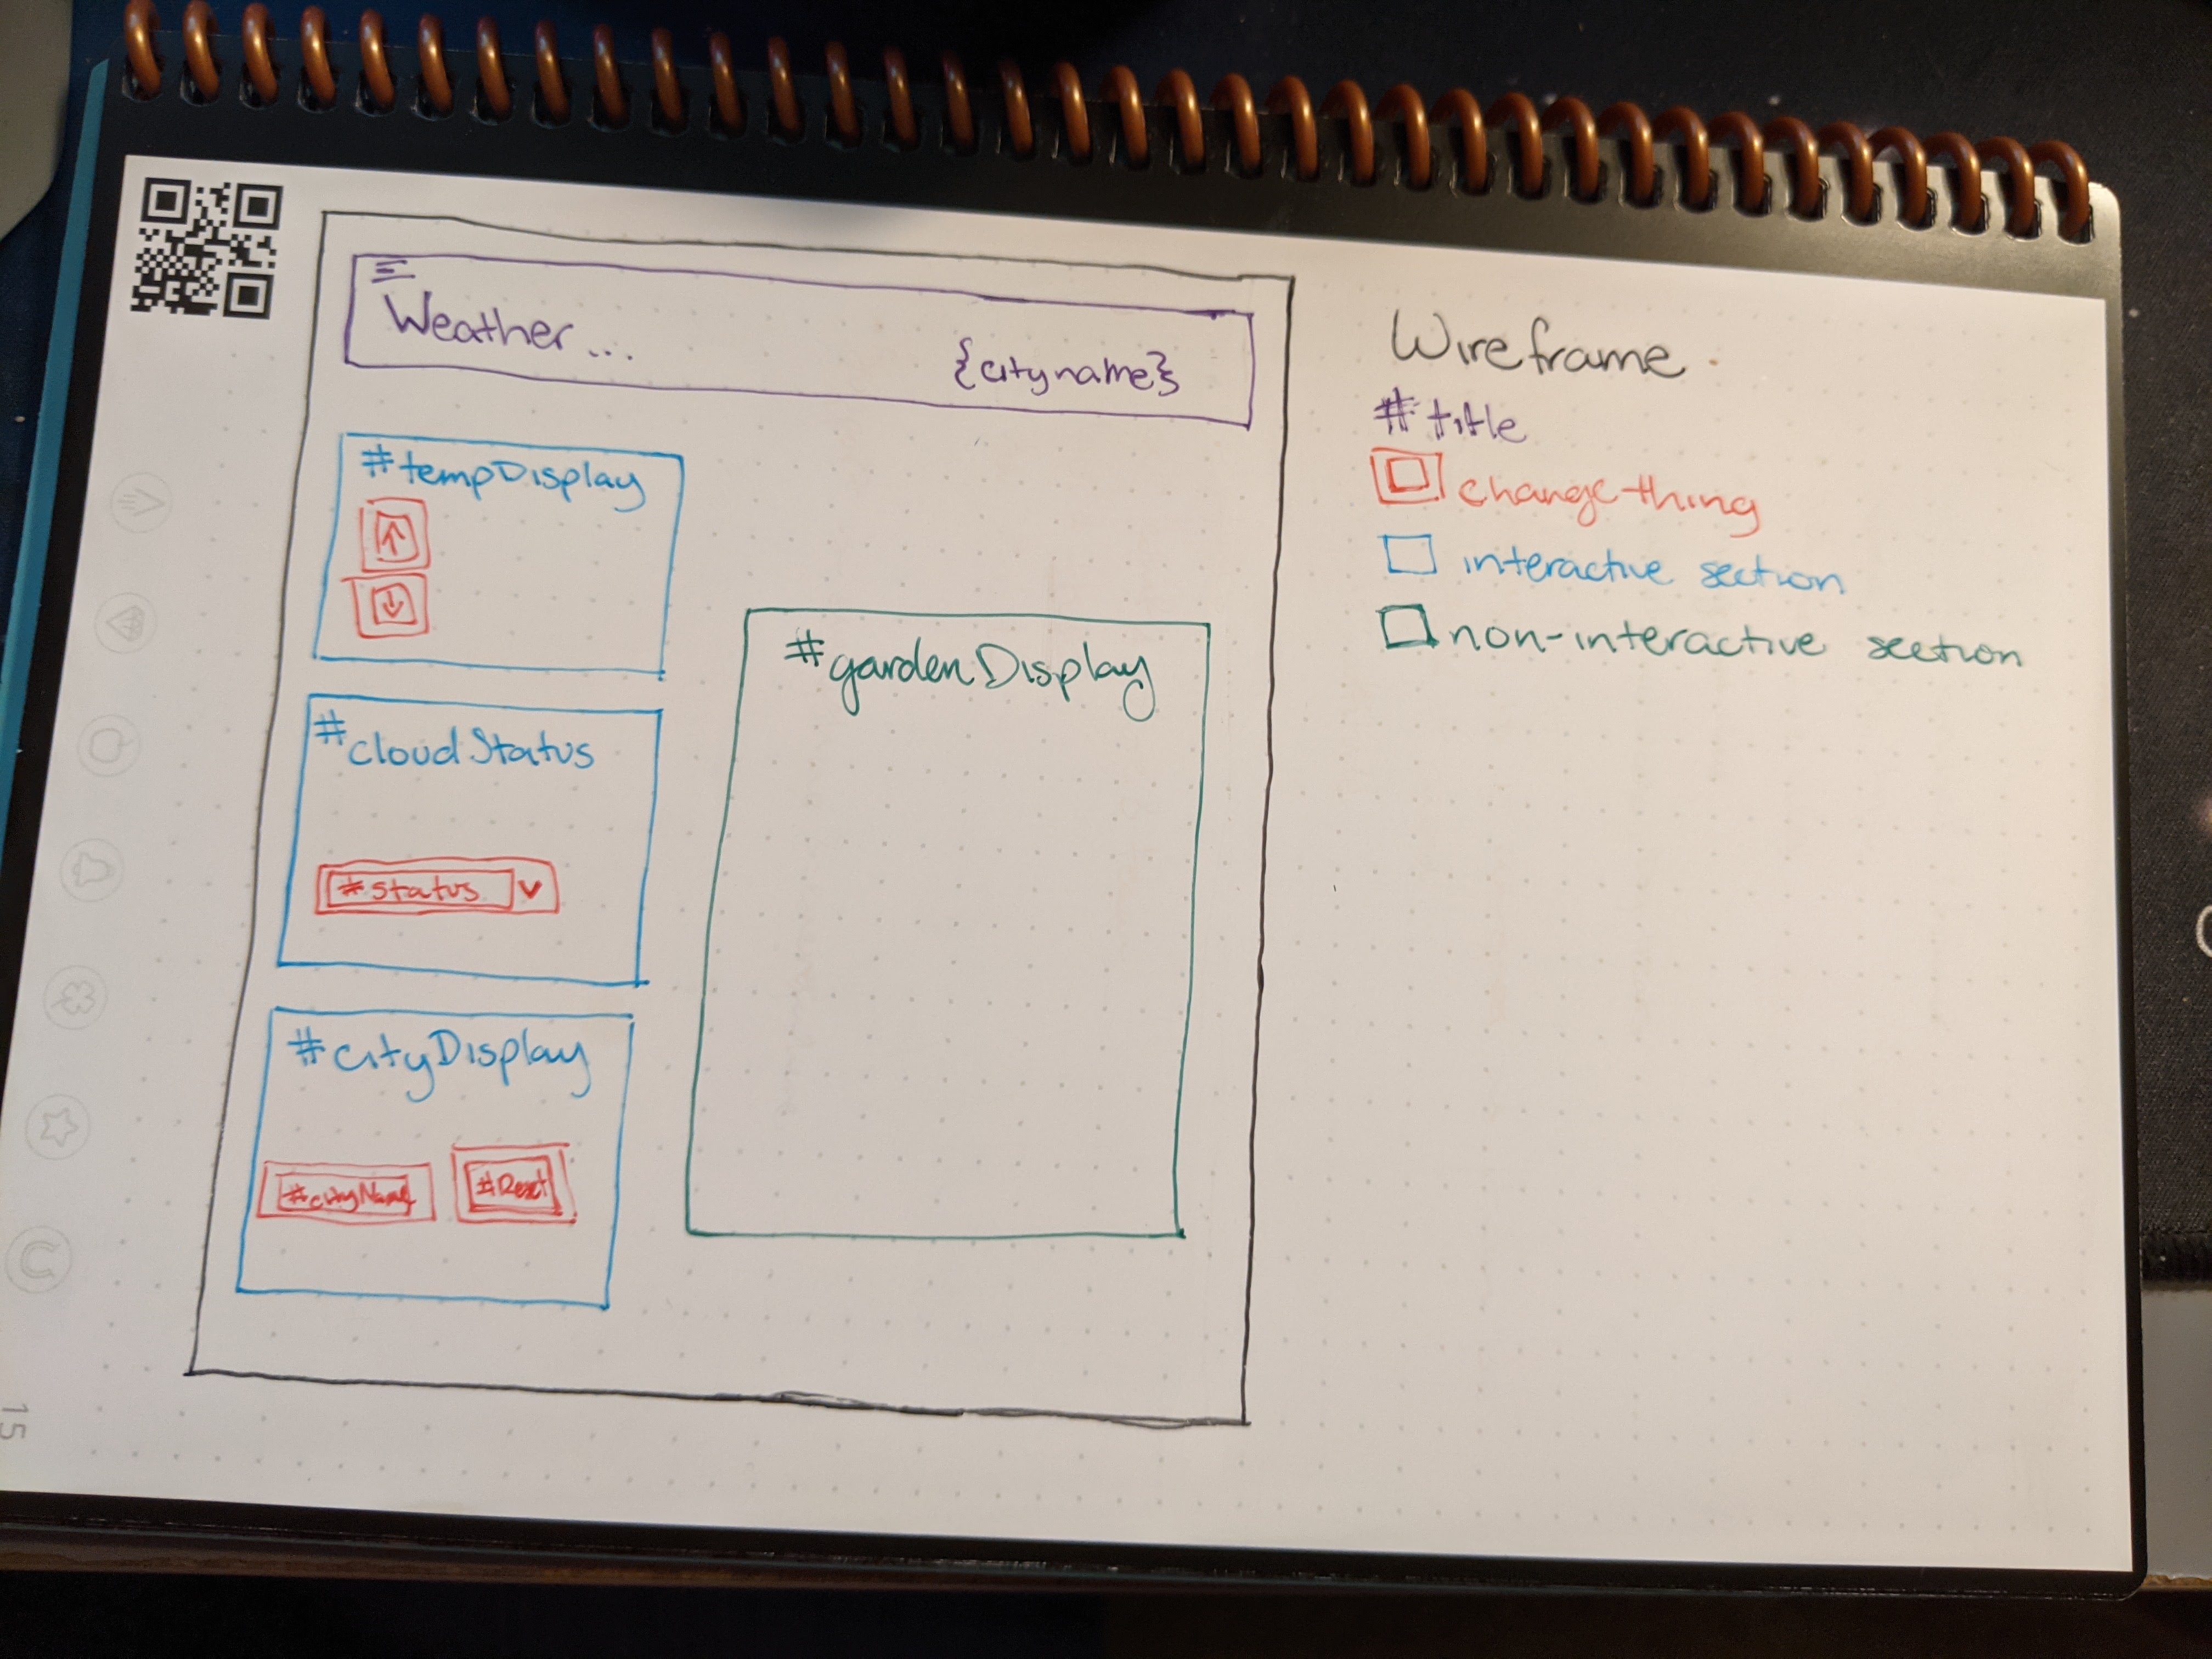 Weather...
{cityname}
#tempDisplay
↑
↓
#cloudStatus
#status v
#cityDisplay
#cityName #Reset
#gardenDisplay
Wireframe
#title
change-thing
interactive section
non-interactive section
15